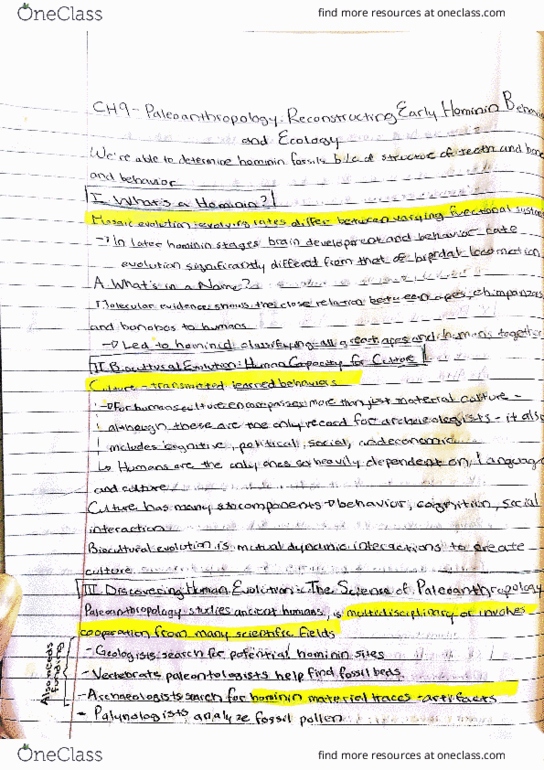 OneClass
find more resources at oneclass.com
CH9- Paleoanthropology: Reconstructing Early Hominin Behav
and Ecology
We're able to determine hominin fossils b/c of structure of teeth and bone
and behavior
I. What's a Hominin?
Mosaic evolution: evolving rates differ between varying functional systems
→ In later hominin stages brain development and behavior rate
evolution significantly differed from that of bipedal locomotion
A. What's in a Name?
Molecular evidence shows the close relation between apes, chimpanzees
and bonobos to humans
→ Led to hominid classifying all great apes and humans together
II Biocultural Evolution: Human Capacity for Culture
Culture - transmitted, learned behaviors
→ For humans culture encompasses more than just material culture -
although these are the only record for archaeologists - it also
includes cognitive, political, social, and economic
↳ Humans are the only ones so heavily dependent on language
and culture
Culture has many components → behavior, cognition, social
interaction
Biocultural evolution is mutual dynamic interactions to create
culture
III. Discovering Human Evolution: The Science of Paleoanthropology
Paleoanthropology studies ancient humans, is multidisciplinary or involves
cooperation from many scientific fields
- Geologists search for potential hominin sites
- Vertebrate paleontologists help find fossil beds
- Archaeologists search for hominin material traces - artifacts
- Palynologists analyze fossil pollen
Also needs funding
OneClass
find more resources at oneclass.com